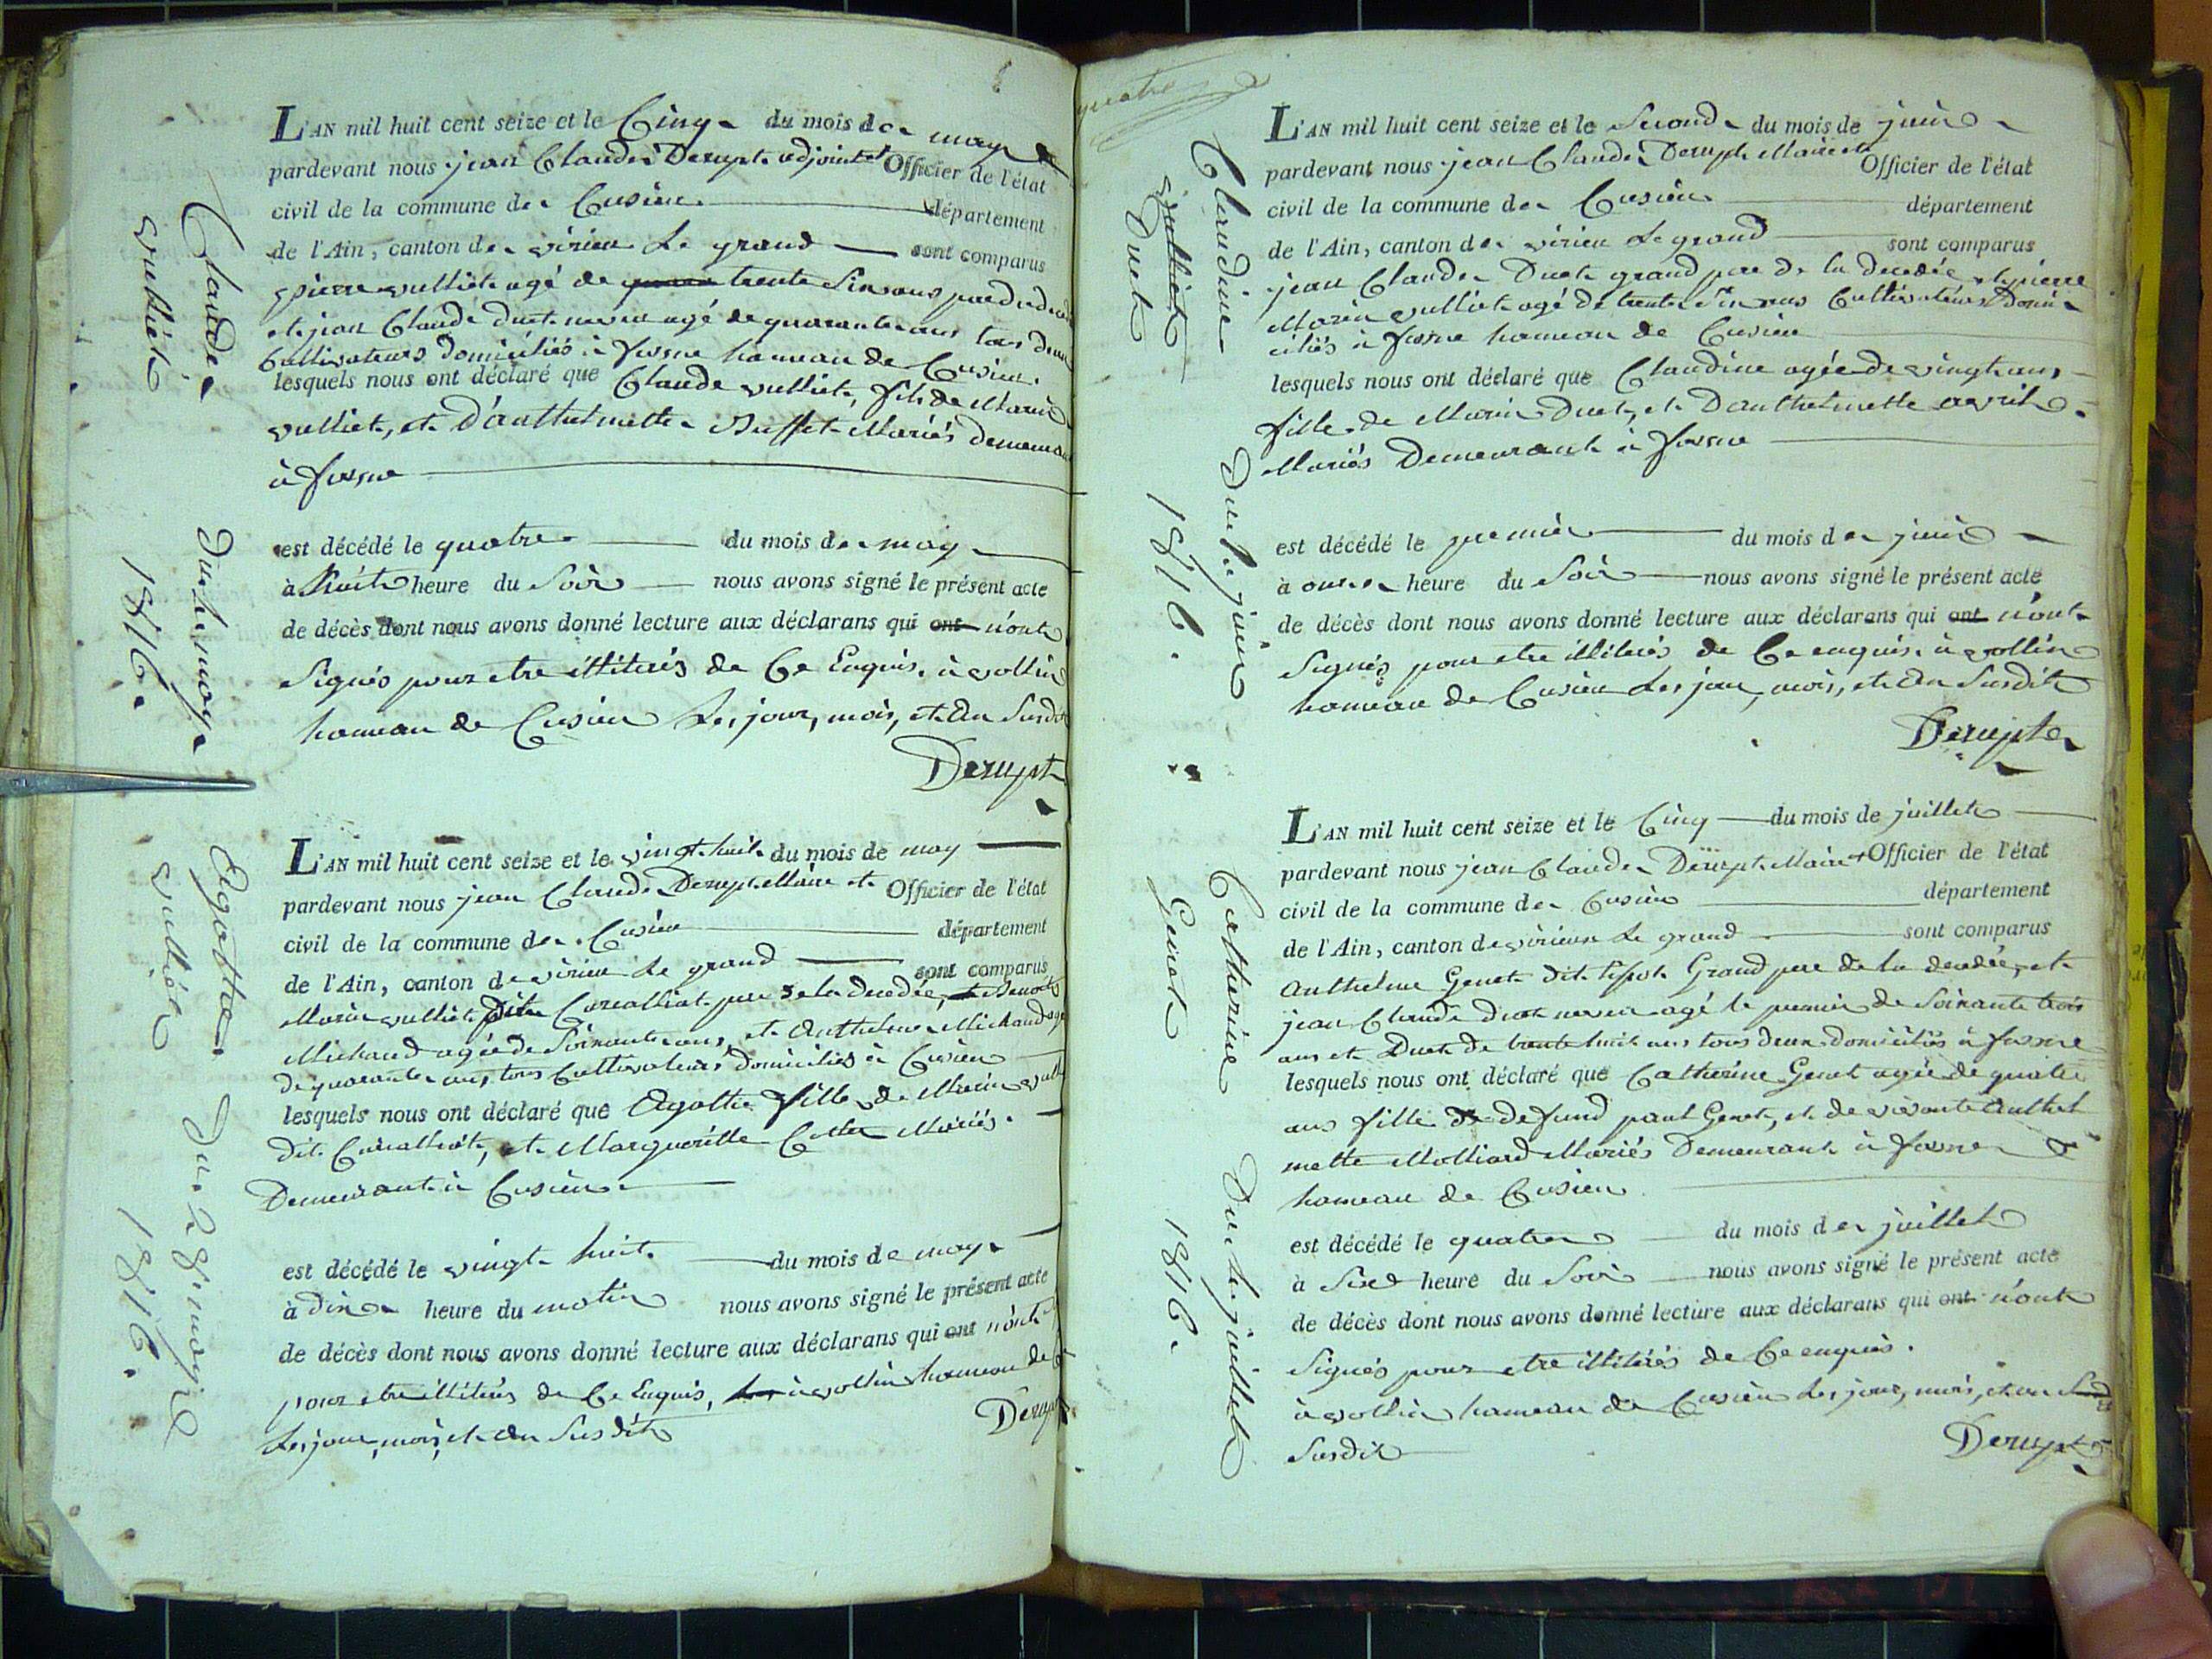 Claude
vulliet
Du 5 may
1816.
L'AN mil huit cent seize et le Cinq du mois de may
pardevant nous jean Claude Derupt adjoint et Officier de l'état
civil de la commune de Cusieu département
de l'Ain, canton de virieu Le grand sont comparus
pierre vulliet agé de trente Six ans
et jean Claude Duet agé de quarante ans tous deux
Cultivateurs domiciliés à fosne hameau de Cusieu.
lesquels nous ont déclaré que Claude vulliet, fils de Marin
vulliet, et D'anthelmette Buffet Mariés
à fosne
est décédé le quatre du mois de may
à huit heure du Soir nous avons signé le présent acte
de décès dont nous avons donné lecture aux déclarans qui ont n'ont
Signés pour etre illiterés de Ce Enquis. à vollin
hameau de Cusieu Les jour, mois, et An Susdit
Derupt
Agatte
vulliet
Du 28 may
1816.
L'AN mil huit cent seize et le vingt huit du mois de may
pardevant nous jean Claude Derupt Maire et Officier de l'état
civil de la commune de Cusieu département
de l'Ain, canton de virieu Le grand sont comparus
Marin vulliet Dit pere de la decedée, et Benoit
Michaud agée de Soixante ans, et Anthelme Michaud
de quarante ans, tous Cultivateurs domiciliés à Cusieu
lesquels nous ont déclaré que Agatte fille de Marin
dit et Margueritte Mariés.
Demeurant à Cusieu
est décédé le vingt huit du mois de may
à Dix heure du matin nous avons signé le présent acte
de décès dont nous avons donné lecture aux déclarans qui ont n'ont
pour etre illiterés de Ce Enquis, à vollin hameau de
Les jour, mois, et an Susdit
Derupt
quatre
Claudine
vulliet
Duet
Du 2 juin
1816.
L'AN mil huit cent seize et le Second du mois de juin
pardevant nous jean Claude Derupt Maire et Officier de l'état
civil de la commune de Cusieu département
de l'Ain, canton de virieu Le grand sont comparus
jean Claude Duet grand pere de la decedée et pierre
Marin vulliet agé de trente Six ans Cultivateurs Domi-
ciliés à fosne hameau de Cusieu
lesquels nous ont déclaré que Claudine agée de vingt ans
fille de Marin Duet, et D'anthelmette avril
Mariés Demeurant à fosne
est décédé le premier du mois de juin
à onze heure du Soir nous avons signé le présent acte
de décès dont nous avons donné lecture aux déclarans qui ont n'ont
Signés pour etre illiterés de Ce enquis. à vollin
hameau de Cusieu Les jour, mois, et An Susdit
Derupt
Catherine
Genet
Du 5 juillet
1816.
L'AN mil huit cent seize et le Cinq du mois de juillet
pardevant nous jean Claude Derupt Maire et Officier de l'état
civil de la commune de Cusieu département
de l'Ain, canton de virieux Le grand sont comparus
Anthelme Genet dit Grand pere de la decedée, et
jean Claude Duet agé le premier de Soixante trois
ans et Duet de trente huit ans tous deux domiciliés à fosne
lesquels nous ont déclaré que Catherine Genet agée de quatre
ans fille de defund paul Genet, et de vivante Anthel
mette Molliard Mariés Demeurant à fosne
hameau de Cusieu
est décédé le quatre du mois de juillet
à Sixe heure du Soir nous avons signé le présent acte
de décès dont nous avons donné lecture aux déclarans qui ont n'ont
Signés pour etre illiterés de Ce enquis.
à vollin hameau de Cusieu Les jour, mois, et an
Susdit
Derupt